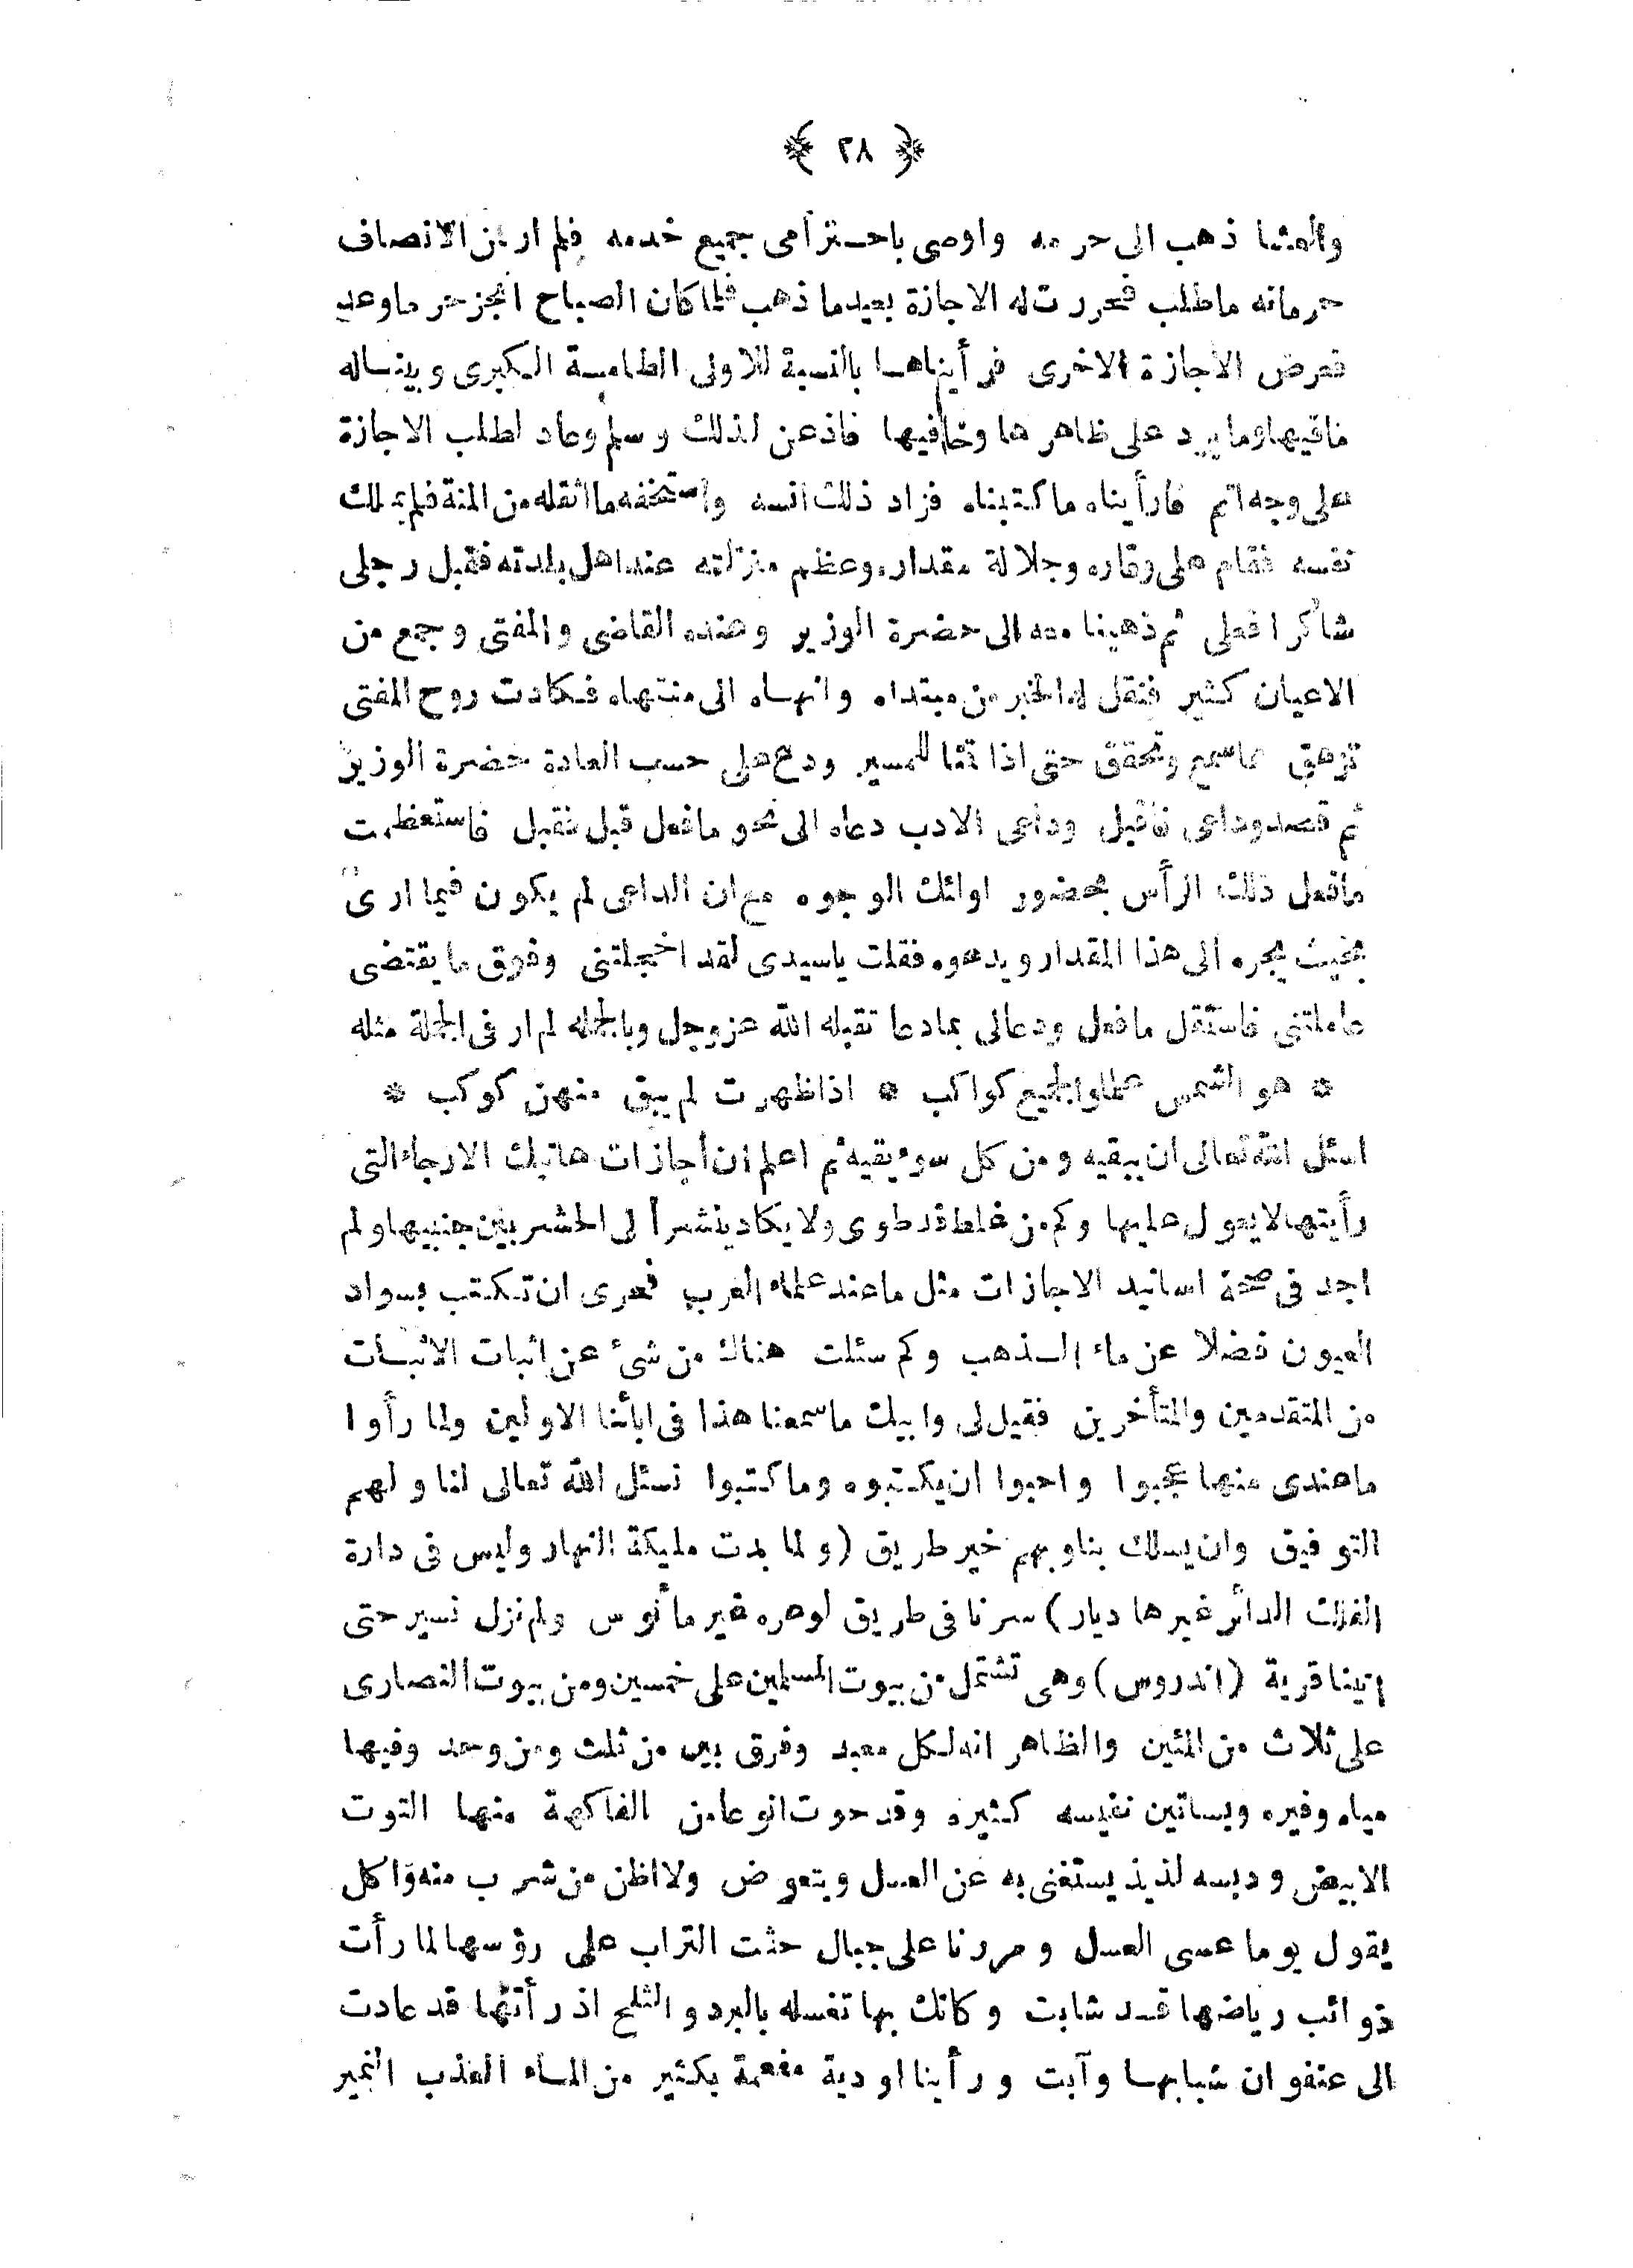 ﴿ ٢٨ ﴾
والعشا ذهب الى حرمه واوصى باحسترامى جميع خدمه فلم ار من الانصاف
حرمانه ماطلب فحررت له الاجازة بعيدما ذهب فلما كان الصباح انجز حر ماوعد
فعرض الاجازة الاخرى فرأيناهسا بالنسبة للاولى الطامسة الكبرى وبينساله
مافيها وما يرد على ظاهرها وخافيها فاذعن لذلك وسلم وعاد لطلب الاجازة
على وجه اتم فارأيناه ما كتبناه فزاد ذلك انسه واستخفه ما اثقله من المنة فلم يملك
نفسه فقام على وقاره وجلالة مقداره وعظم منزلته عند اهل بلدته فقبل رجلى
شاكرا فعلى ثم ذهبنا معه الى حضرة الوزير وعنده القاضى والمفتى وجمع من
الاعيان كثير فنقل له الخبر من مبتداه وانهساه الى منتهاه فكادت روح المفتى
تزهق مماسمع وتحقق حتى اذا قمنا للمسير ودع على حسب العادة حضرة الوزير
ثم قصد وداعى فاقبل وداعى الادب دعاه الى نحو مافعل قبل فقبل فاستعظمت
مافعل ذلك الرأس بحضور اوائك الوجوه مع ان الداعى لم يكون فيما ارى
بحيث يجره الى هذا المقدار ويدعوه فقلت ياسيدى لقد اخجلتنى وفوق ما يقتضى
عاملتنى فاستقل مافعل ودعالى بمادعا تقبله الله عز وجل وبالجمله لم ار فى الجملة مثله
* هو الشمس علما والجميع كواكب * اذا ظهرت لم يبق منهن كوكب *
اسئل الله تعالى ان يبقيه ومن كل سوء يقيه ثم اعلم ان اجازات هاتيك الارجاء التى
رأيتها لا يعول عليها وكم من غلط قد طوى ولا يكاد ينشر الى الحشر بين جنبيها ولم
اجد فى صحة اسانيد الاجازات مثل ما عند علماء العرب فحرى ان تكتب بسواد
العيون فضلا عن ماء الذهب وكم سئلت هناك من شئ عن اثبات الاثبسات
من المتقدمين والمتأخرين فقيل لى وابيك ماسمعنا هذا فى ابائنا الاولين ولما رأوا
ماعندى منها عجبوا واحبوا ان يكتبوه وما كتبوا نسئل الله تعالى لنا ولهم
التوفيق وان يسلك بنا وبهم خير طريق (ولما بدت مليكة النهار وليس فى دارة
الفلك الدائر غيرها ديار) سرنا فى طريق لوعره غير مأنوس ولم نزل نسير حتى
اتينا قرية (اندروس) وهى تشتمل من بيوت المسلمين على خمسين ومن بيوت النصارى
على ثلاث من المئين والظاهر انه لكل معبد وفرق بين من ثلث ومن وحد وفيها
مياه وفيره وبساتين نفيسه كثيره وقد حوت انوعا من الفاكهة منها التوت
الابيض ودبسه لذيذ يستغنى به عن العسل ويتعوض ولا اظن من شرب منه واكل
يقول يوما عسى العسل ومررنا على جبال حثت التراب على رؤسها لما رأت
ذوائب رياضها قد شابت وكانك بها تغسله بالبرد والثلج اذ رأتها قد عادت
الى عنفوان شبابها وآبت ورأينا اودية مفعمة بكثير من الماء العذب النمير